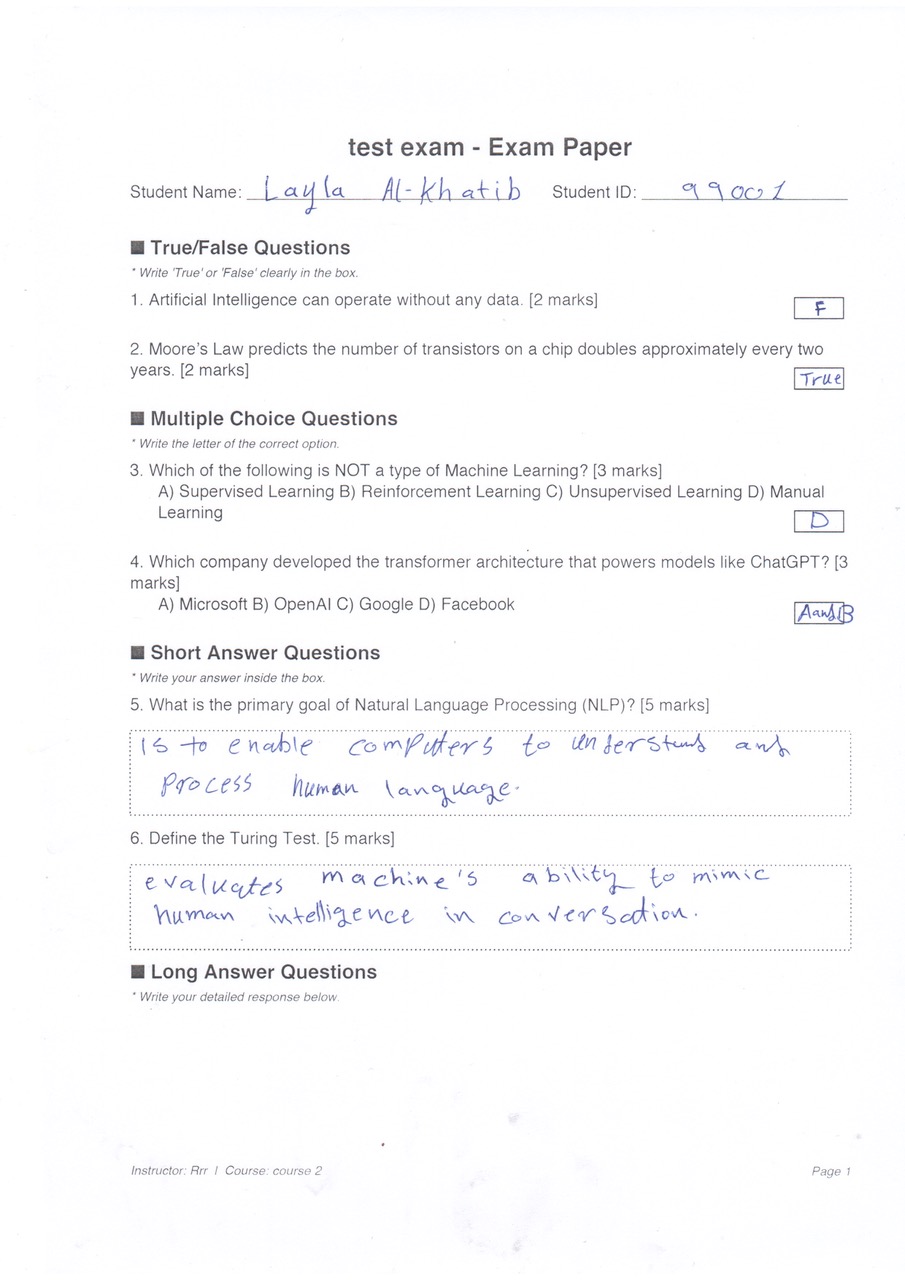 test exam - Exam Paper
Student Name: Layla Al-Khatib Student ID: 99001
■ True/False Questions
* Write 'True' or 'False' clearly in the box.
1. Artificial Intelligence can operate without any data. [2 marks]
F
2. Moore's Law predicts the number of transistors on a chip doubles approximately every two
years. [2 marks]
True
■ Multiple Choice Questions
* Write the letter of the correct option.
3. Which of the following is NOT a type of Machine Learning? [3 marks]
A) Supervised Learning B) Reinforcement Learning C) Unsupervised Learning D) Manual
Learning
D
4. Which company developed the transformer architecture that powers models like ChatGPT? [3
marks]
A) Microsoft B) OpenAI C) Google D) Facebook
A and B
■ Short Answer Questions
* Write your answer inside the box.
5. What is the primary goal of Natural Language Processing (NLP)? [5 marks]
is to enable computers to understand and
process human language.
6. Define the Turing Test. [5 marks]
evaluates machine's ability to mimic
human intelligence in conversation.
■ Long Answer Questions
* Write your detailed response below.
Instructor: Rrr | Course: course 2 Page 1